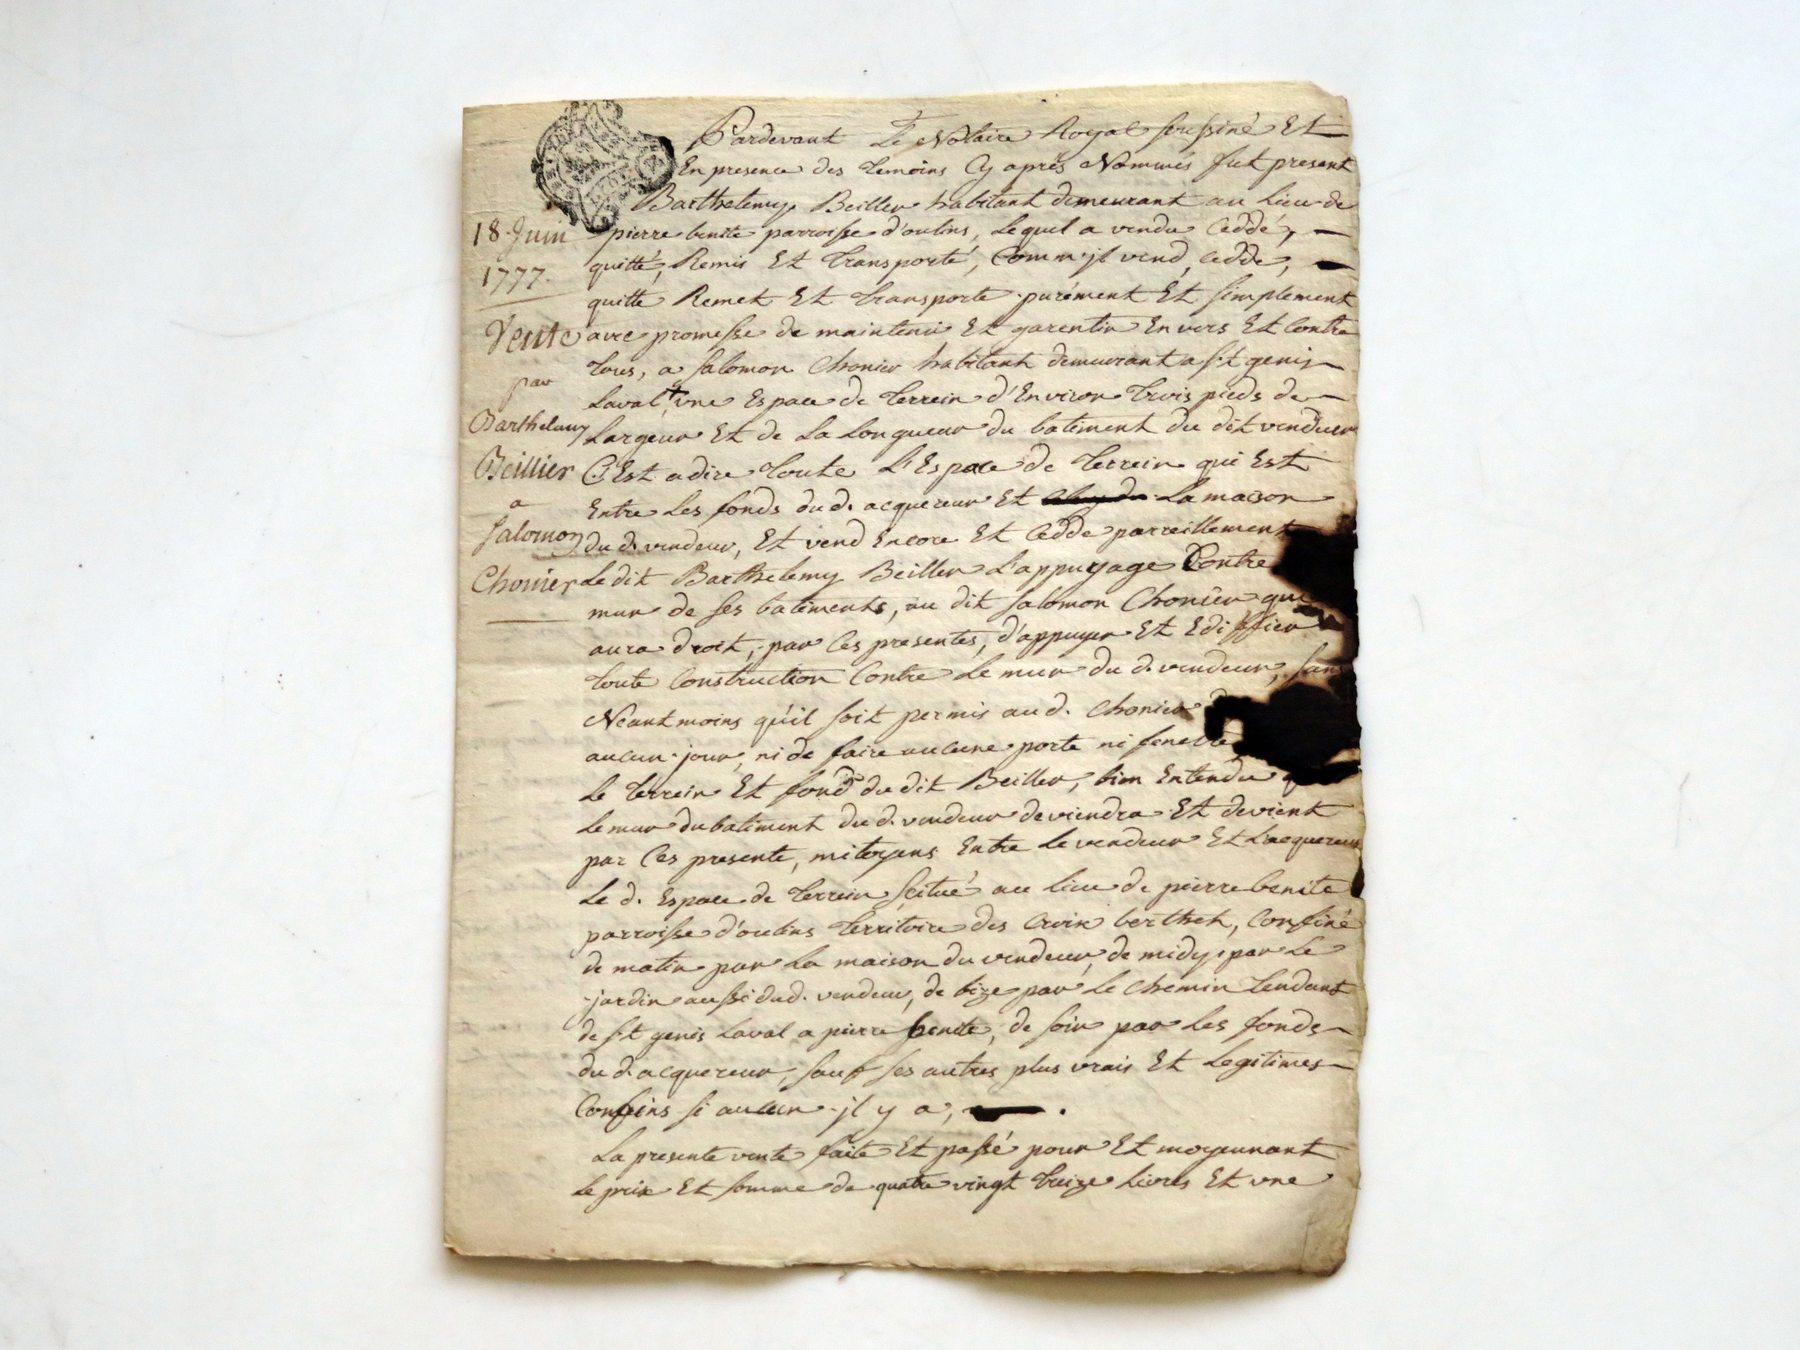 Pardevant Le Notaire Royal soussiné Et
En presence des temoins Cy aprés Nommés fut present
Barthelemy Beiller habitant demeurant au Lieu de
pierre benite parroisse d'oulins, Lequel a vendu Ceddé,
quitté, Remis Et transporté, Comm'jl vend, cedde,
quitte Remet Et transporte purément Et simplement
avec promesse de maintenir Et garentir Envers Et Contre
tous, a salomon Chonier habitant demeurant a s.t genis
Laval, vne Espace de terrein d'Environ trois pieds de
Largeur Et de La Longueur du batiment du dit vendeur
C'Est adire toute L'Espace de terrein qui Est
Entre Les fonds dud. acquereur Et La maison
du d. vendeur, Et vend Encore Et Cedde parreillement
Le dit Barthelemy Beiller L'appuyage Contre
mur de ses batiments, au dit salomon Chonier qui
aura droit, par Ces presentes, d'appuyer Et Ediffier
toute Construction Contre Le mur du d. vendeur, sans
Néantmoins qu'il soit permis au d. Chonier
aucun jour, ni de faire aucune porte ni fenetre
Le terrein Et fond du dit Beiller, bien Entendu
Le mur du batiment du d. vendeur deviendra Et devient
par Ces presente, mitoyens Entre Le vendeur Et L'acquereur
Le d. Espace de terrein scitué au lieu de pierre benite
parroisse d'oulins territoire des Croix berthet, Confiné
de matin par La maison du vendeur, de midy par Le
jardin aussi dud. vendeur, de bize par Le Chemin tendant
de s.t genis Laval a pierre benite, de soir par Les fonds
du d. acquereur, sauf ses autres plus vrais Et Legitimes
Confins si aucun jl y a,
La presente vente faite Et passé pour Et moyennant
Le prix Et somme de quatre vingt treize Livres Et vne
18 Juin
1777.
Vente
par
Barthelemy
Beillier
a
Salomon
Chonier